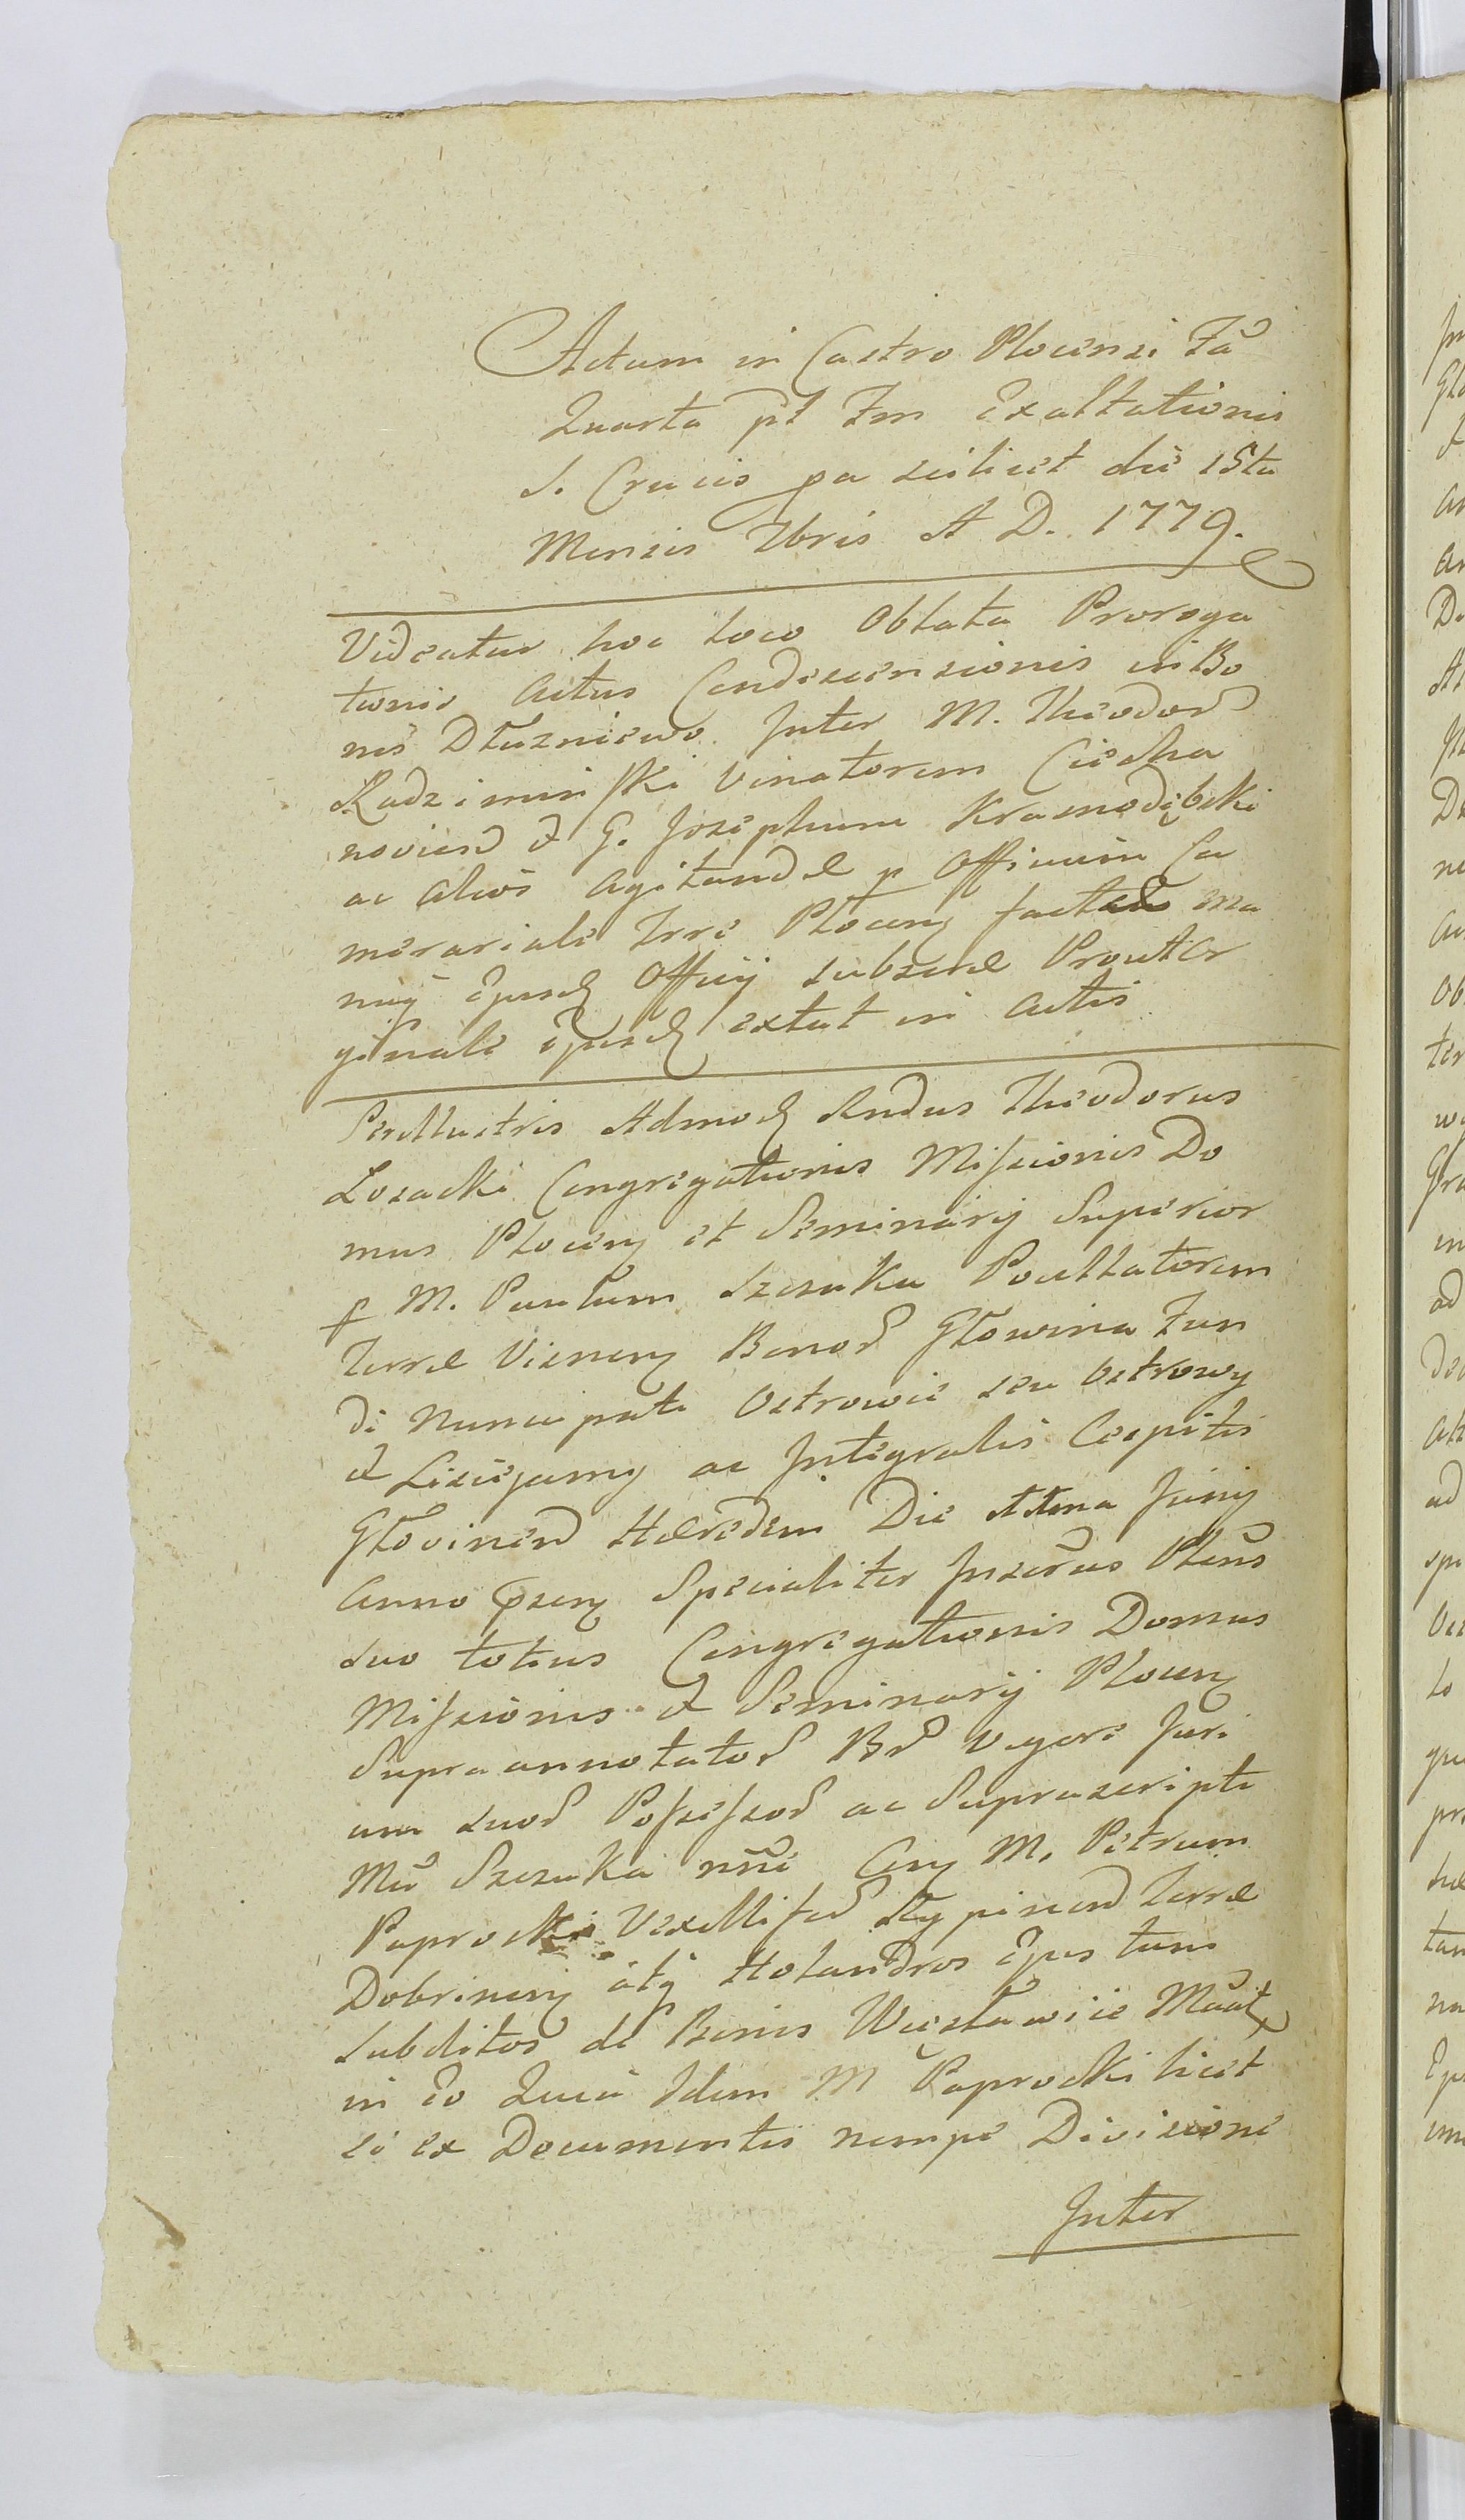 Actum in Castro Plocensi Fa
Quarta pt Fm Exaltationis
S. Crucis pa scilicet die 15ta
Mensis 7bris A D. 1779.
Videatur hoc loco Oblata Proroga
tionis Actus Condescensionis in Bo
nis Dłuzniewo Inter M. Theodor
Radziminski Venatorem Ciecha
novien & G. Josephum Krasnodębski
ac alios agitandæ p Officium Ca
merariale Trre Plocen factæ ma
nuq Ejusd Officij subscræ Prout Or
ginale Ejusd extat in Actis
Perillustris Admod Rndus Theodorus
Losacki Congregationis Missionis Do
mus Plocen et Seminarij Superior
p M. Paulum Szczuka Pocillatorem
Terræ Visnen Bonor Głowina Fun
di nuncupati Ostrowie seu Ostrowy
& Liciejamy ac Integralis Cespitis
Głovinen Hæredem Die Junij
Anno præsen Specialiter Inscrus Pleno
suo totius Congregationis Domus
Missionis & Seminarij Plocen
Supraannotator Br vigore Juri
um suor Possessor ac Suprascripti
Mci Szczuka nne Con M. Petrum
Paprocki Vexillifer Rypinen Terræ
Dobrinen atq Holandros Ejus tum
subditos de Bonis Więcławice Mant
in eo Quia Idem M Paprocki licet
ei ex Documentis nempe Divisione
Inter